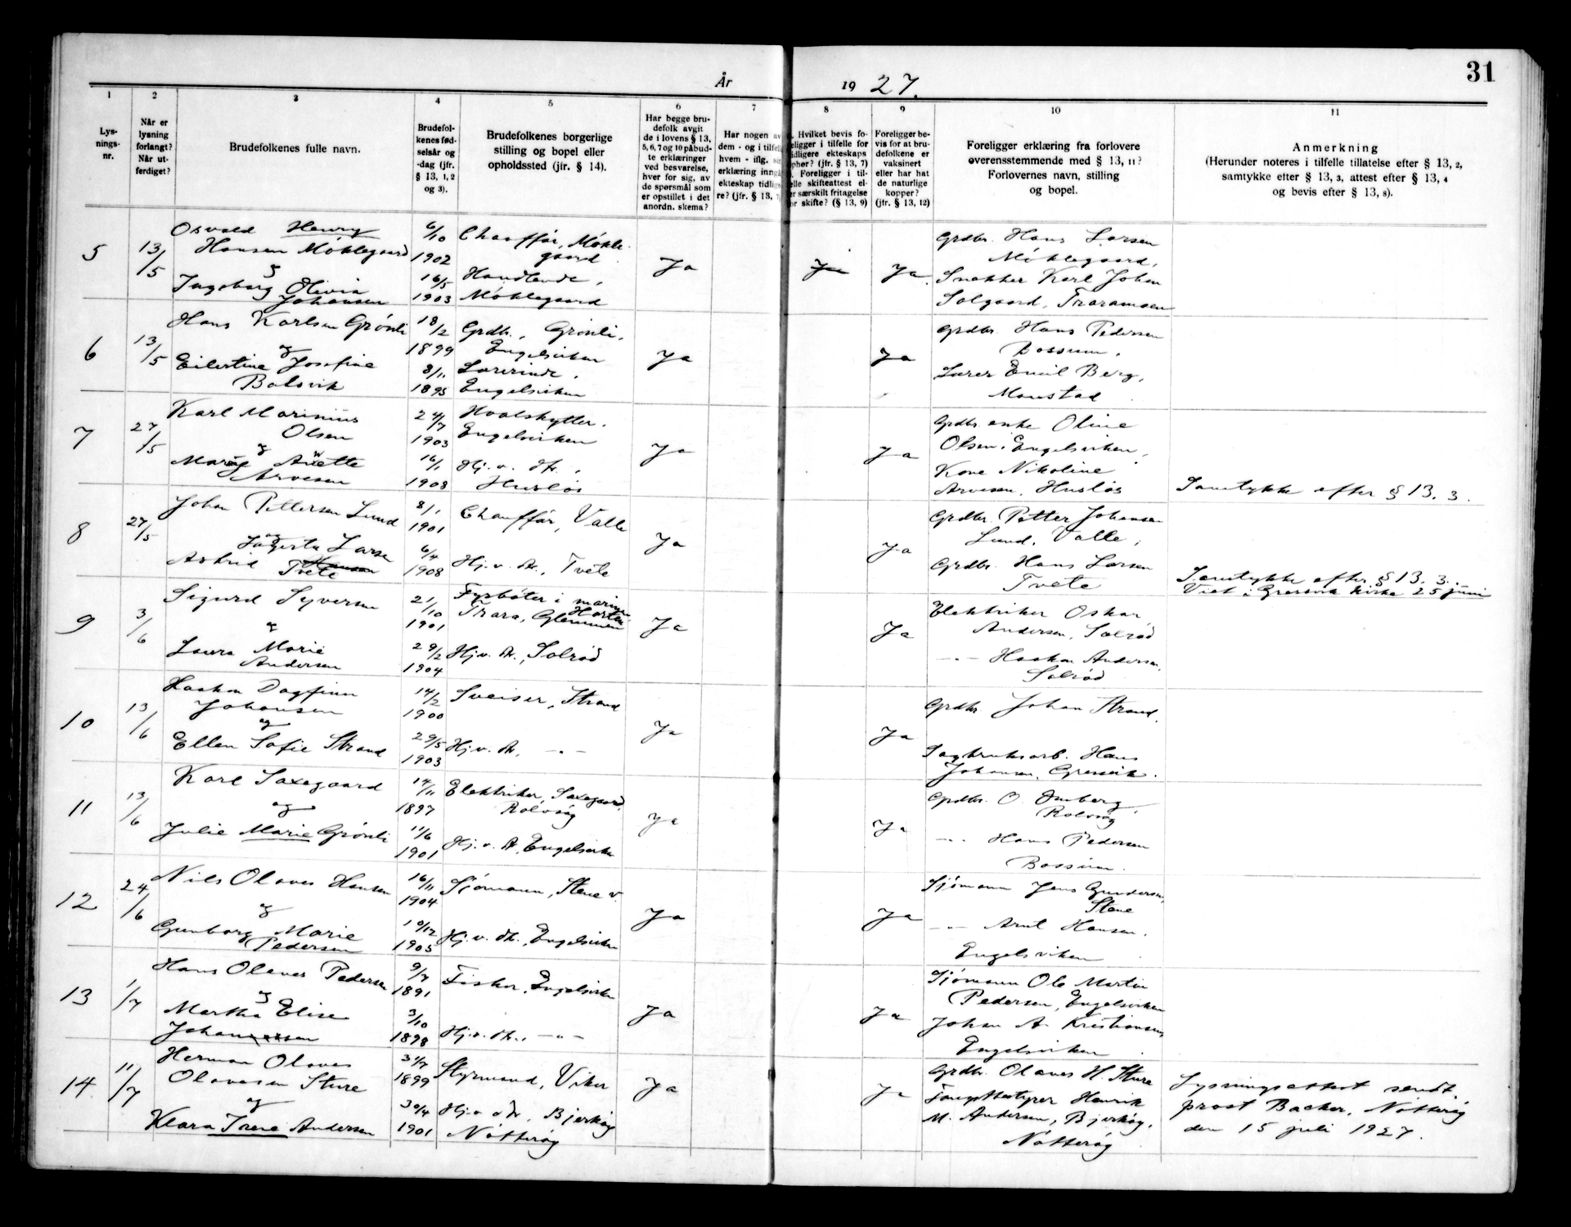 31
År 1927.
1 2 3 4 5 6 7 8 9 10 11
Lys-
nings-
nr.
Når er
lysning
forlangt?
Når ut-
ferdiget?
Brudefolkenes fulle navn.
Brudefol-
kenes fød-
selsår og
-dag (jfr.
§ 13, 1, 2
og 3).
Brudefolkenes borgerlige
stilling og bopel eller
opholdssted (jfr. § 14).
Har begge bru-
defolk avgit
de i lovens § 13,
5, 6, 7 og 10 påbud-
te erklæringer
ved besvarelse,
hver for sig, av
de spørsmål som
er opstillet i det
anordn. skema?
Har nogen av
dem - og i tilfelle
hvem - iflg.
erklæring inngå
ekteskap tidlig
re? (jfr. § 13,
Hvilket bevis fo-
religger i tilfelle for
tidligere ekteskaps
ophør? (jfr. § 13, 7)
Foreligger i til-
felle skifteattest el-
ler særskilt fritagelse
for skifte? (§ 13, 9)
Foreligger be-
vis for at bru-
defolkene er
vaksinert
eller har hat
de naturlige
kopper?
(jfr. § 13, 12)
Foreligger erklæring fra forlovere
overensstemmende med § 13, 11?
Forlovernes navn, stilling
og bopel.
Anmerkning
(Herunder noteres i tilfelle tillatelse efter § 13, 2,
samtykke efter § 13, 3, attest efter § 13, 4
og bevis efter § 13, 8).
5
13/5
Osvald Henry
Hansen Møklegaard
&
Ingeborg Olivia
Johansen
6/10
1902
16/5
1903
Chauffør, Møkle-
gaard.
Handlende,
Møklegaard
Ja
Ja
Ja.
Grdbr. Hans Larsen
Møklegaard,
Snekker Karl Johan
Solgaard, Traramsen
6
13/5
Hans Karlsen Grønli
og
Eilertine Josefine
Bolsvik
18/2
1899
8/1
1895
Grdbr., Grønli,
Engelsviken
Lærerinde,
Engelsviken
Ja
Ja
Grdbr Hans Pedersen
Bossum,
Lærer Emil Berg,
Monstad
7
27/5
Karl Marinius
Olsen
og
Marie Anette
Arvesen
24/7
1903
16/1
1908
Hvalskytter.
Engelsviken
Hj. v. dr.,
Husløs
Ja
Ja
Grdbr enke Oline
Olsen, Engelsviken,
Kone Nikoline
Arvesen, Husløs
Samtykke efter § 13. 3.
8
27/5
Johan Pettersen Lund
og
Astrid Ingerta Larsen
Hansen
Tvete
8/1
1901
6/4
1908
Chauffør, Valle
Hj. v. dr., Tvete
Ja
Ja
Grdbr. Petter Johansen
Lund, Valle,
Grdbr. Hans Larsen
Tvete
Samtykke efter § 13. 3.
Viet i Gressvik kirke 25 juni
9
3/6
Sigurd Syversen
&
Laura Marie
Andersen
21/10
1901
29/2
1904
Fyrbøter i marinen
Horten
Trara, Glemmen
Hj. v. dr., Solrød
Ja
Ja
Elektriker Oskar
Andersen, Solrød
-"- Haakon Andersen,
Solrød
10
13/6
Haakon Dagfinn
Johansen
og
Ellen Sofie Strand
14/2
1900
29/5
1903
Sveiser, Strand
Hj. v. dr. -"-
Ja
Ja
Grdbr Johan Strand.
Sagbruksarb. Hans
Johansen, Gressvik.
11
13/6
Karl Saxegaard
og
Julie Marie Grønli
14/11
1897
11/6
1901
Elektriker, Saxegaard,
Rolvsøy
Hj. v. dr. Engelsviken
Ja
Ja
Grdbr. O. Omberg,
Rolvsøy
-"- Hans Pedersen
Bossum.
12
24/6
Nils Olaves Hansen
og
Gunborg Marie
Pedersen
16/11
1904
10/12
1905
Sjømann, Stene v.
Hj. v. dr., Engelsviken
Ja
Ja
Sjømann Jens Gundersen,
Stene
-"- Arnt Hansen,
Engelsviken
13
1/7
Hans Olaves Pedersen
og
Martha Elise
Johansen
9/7
1891
3/10
1898
Fisker, Engelsviken
Hj. v. dr., -"-
Ja
Ja
Sjømann Ole Martin
Pedersen, Engelsviken
Johan A. Kristiansen
Engelsviken
14
11/7
Herman Olaves
Olavesen Sture
og
Klara Irene Andersen
31/7
1899
30/4
1901
Styrmand, Viker
Hj. v. dr., Bjerkøy
Nøtterøy
Ja
Ja
Grdbr. Olaves H. Sture
Fangstbestyrer Henrik
M. Andersen, Bjerkøy,
Nøtterøy
Lysningsattest sendt
prost Backer, Nøtterøy
den 15 juli 1927.